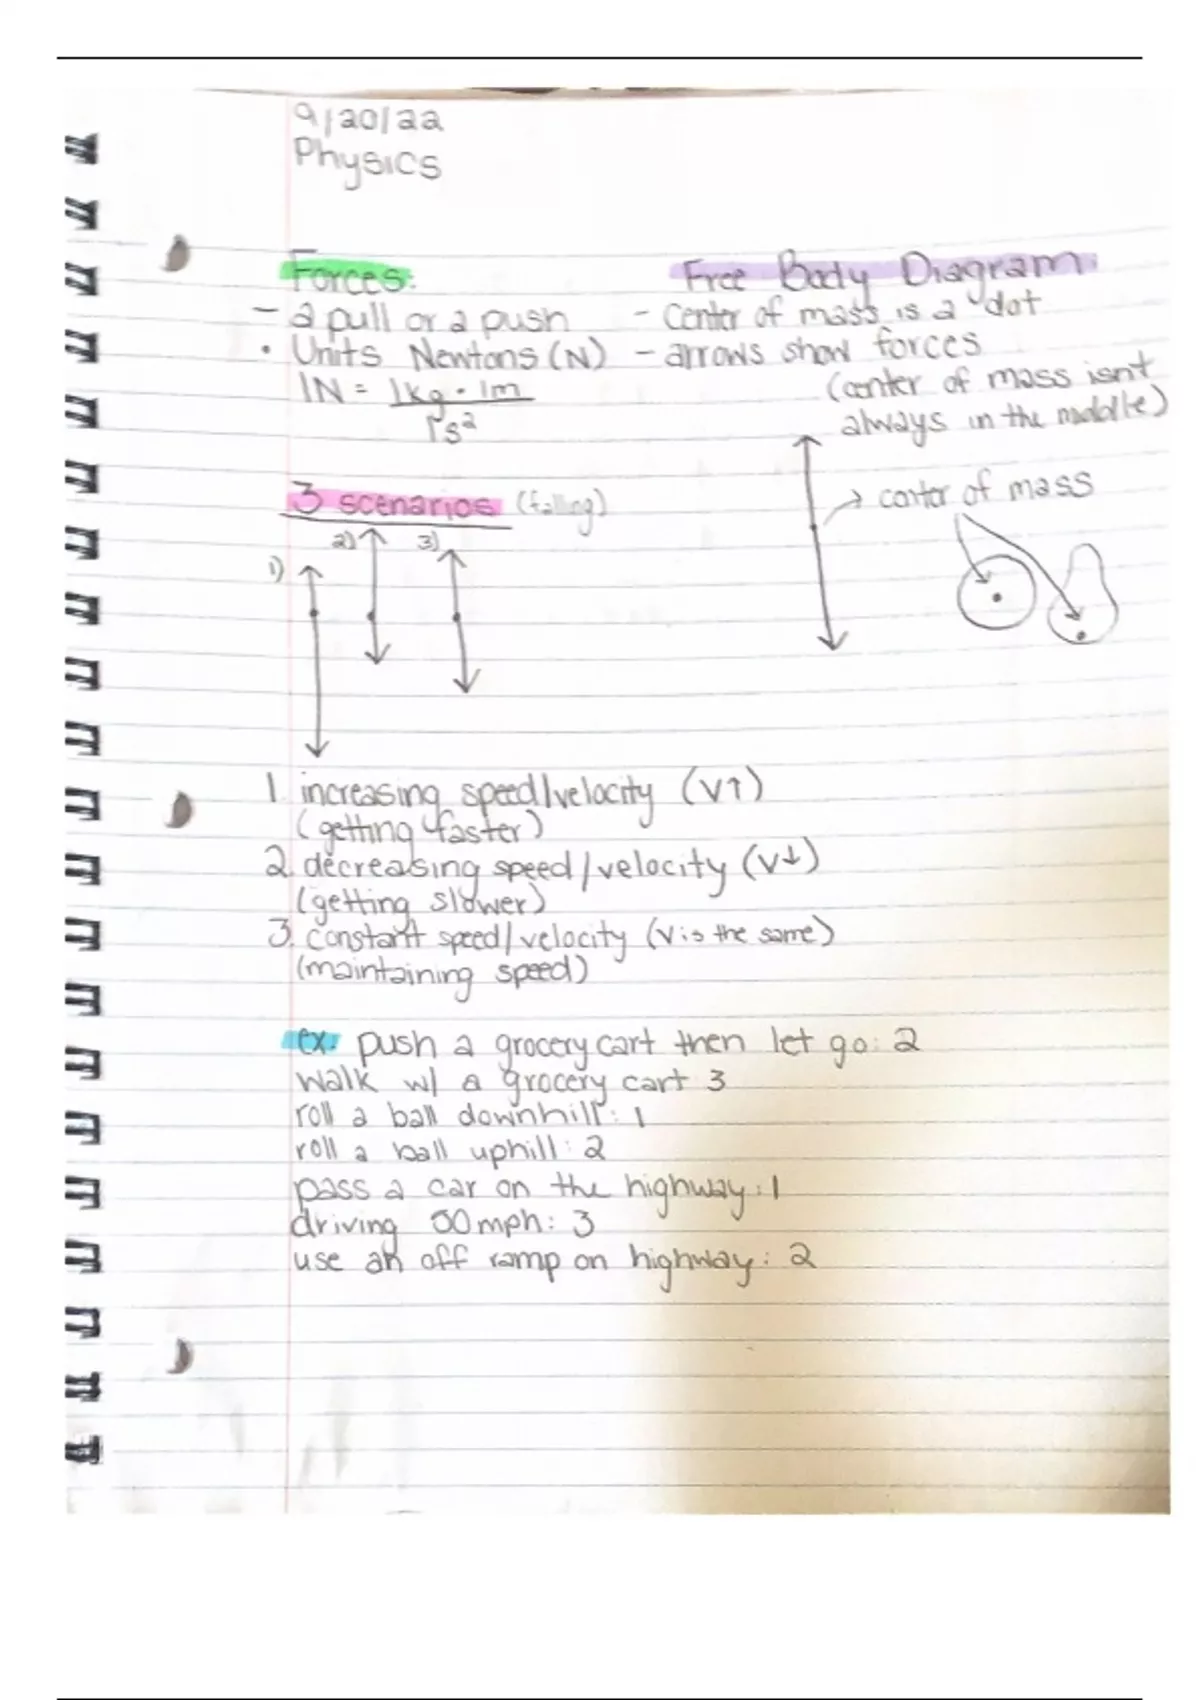 9/20/22
Physics
Forces:
- a pull or a push
• Units Newtons (N)
1N = 1kg · 1m
1s²
Free Body Diagram:
- center of mass is a dot
- arrows show forces
(center of mass isnt
always in the middle)
→ center of mass
3 scenarios (falling)
1)
2)
3)
1. increasing speed/velocity (V↑)
(getting faster)
2. decreasing speed/velocity (V↓)
(getting slower)
3. constant speed/velocity (V is the same)
(maintaining speed)
ex. push a grocery cart then let go: 2
walk w/ a grocery cart 3
roll a ball downhill: 1
roll a ball uphill: 2
pass a car on the highway: 1
driving 50mph: 3
use an off ramp on highway: 2